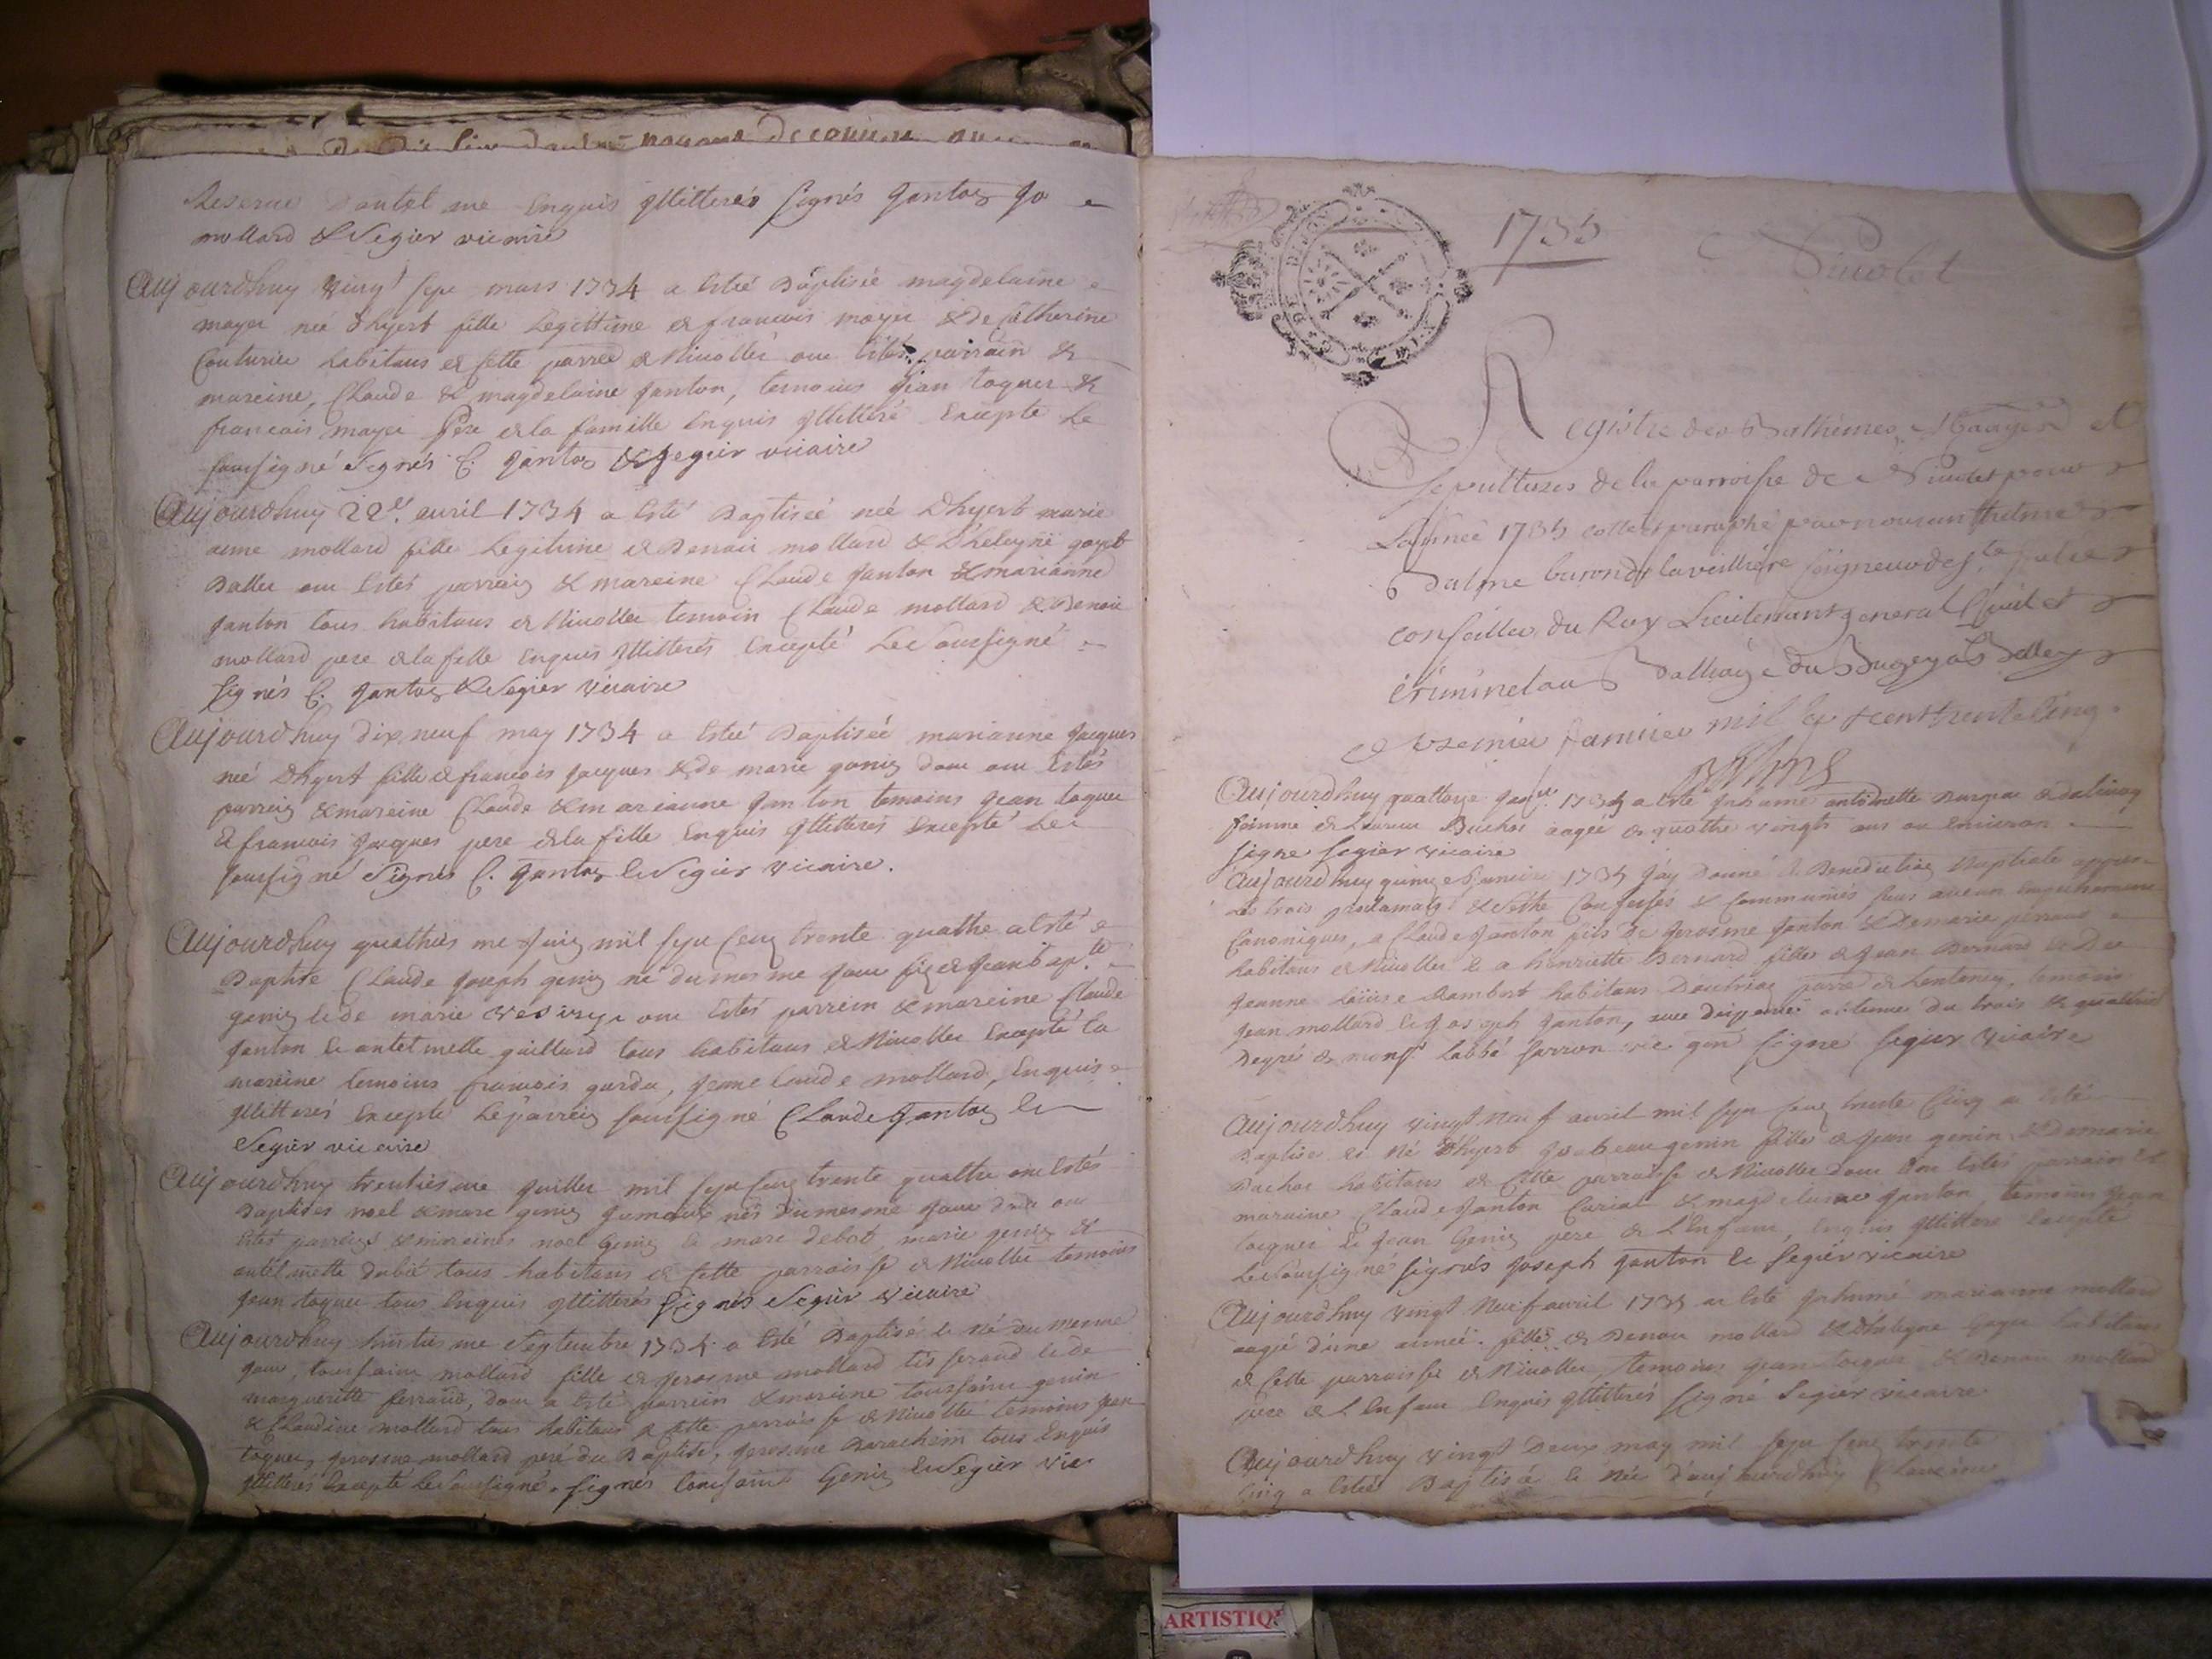 mollard & Segier vicaire
Aujourdhuy vingt sept mars 1734 a esté Baptisée magdelaine
mayer née d'hyert fille Legittime de francois mayer & de Catherine
Couturier habitans de sette parroê de Nivollet ont estés parrain &
mareine, Claude & magdelaine Janton, temoins Jean toquer &
francois mayer Pere de la famille Enquis Illitteré Excepte Le
soussigné Signés C. Janton & Segier vicaire
Aujourdhuy 22e. avril 1734 a Esté Baptiseé neé Dhyert marie
anne mollard fille Legitime de Benoit mollard &
ont Estés parrein & mareine Claude Janton & marianne
Janton tous habitans de Nivollet temoin Claude mollard & Benoit
mollard pere de la fille Enquis Illitterés Excepté Les soussigné
signés C. Janton & Segier vicaire
Aujourdhuy dix neuf may 1734 a Esteé Baptisée marianne Jacques
neé Dhyert fille de francois Jacques & de marie genin dont ont Estés
parrein & mareine Claude & marianne Janton temoins Jean toquer
& francois Jacques pere de la fille Enquis Illitterés Excepté Les
soussigné Signés C. Janton & Segier vicaire.
Aujourdhuy quathiesme Juin mil sept Cent trente quathe a Esté
Baptise Claude Joseph genin né du mesme Jour fiz de Jean bap.te
genin & de marie ont Estés parrein & mareine Claude
Janton & antelmette guillard tous habitans de Nivollet Excepté La
mareine temoins francois gardu, Jean Claude mollard, Enquis
Illitterés Excepté Le parrein soussigné Claude Janton &
Segier vicaire
Aujourdhuy trentiesme Juillet mil sept Cent trente quatre ont Estés
Baptises noel & marc genin Jumeaux nés du mesme Jour dont ont
Estés parreins & mareines noel Genin & marc debot, marie genin &
antelmette dubié tous habitans de sette parroisse de Nivollet temoins
Jean toquer tous Enquis Illitterés Signés Segier vicaire
Aujourdhuy huitiesme Septembre 1734 a Esté Baptisé & né du mesme
Jour, toussaint mollard fille de Jerosme mollard & de
marguerite ferrand, dont a Esté parrein & mareine toussaint genin
& Claudine mollard tous habitans de sette parroisse de Nivollet temoins Jean
toquer, Jerosme mollard peré du Baptisé, Jerosme Barachim tous Enquis
Illitterés Excepté Le soussigné. Signés toussaint Genin & Segier vic
1735
Nivolet
Registre des Bathêmes Mariages et
Sepultures de la parroisse de Nivolet pour
Lannée 1735 cotté et paraphé par nous anthelme
Balme baron de la veilliere seigneur de Ste Julie
conseiller du Roy Lieutenant general Civil et
criminel au Balliage du Bugey a Belley
Ce premier Janvier mil sept cent trente cinq.
Balme
Aujourdhuy quattorze Janvr. 1735 a Esté Inhumé antoinette
femme de Laurent Buchoe aageé de quathe vingts ans ou Environ
signe Segier vicaire
Aujourdhuy quinze Janvier 1735 Jay Donné la Benediction Nuptiale appres
Les trois proclamats. & s'Ethe Confessés & Communiés sans aucun Empechement
Canoniques, a Claude Janton fils de Jerosme Janton & De marie perraud
habitans de Nivollet & a henriette Bernard fille de Jean Bernard & De
Jeanne Loüise Rambert habitans Doutriaz paroê de Lentenay, temoin
Jean mollard & Joseph Janton, avec dispense obtenue du trois & quatrieme
Degrés de monsr. Labbé sarron vic gén signe Segier vicaire
Aujourdhuy vingt neuf avril mil sept Cent trente Cinq a Esté
Baptisé & Né Dhyert genin fille de Jean genin & De marie
Buchoe habitans de Cette parroisse de Nivollet dont ont Estés parrain &
maraine Claude Janton Cariat & magdelaine Janton, temoins Jean
toquer & Jean Genin pere de L'Enfant, Enquis Illittere Excepté
Les soussigné signés Joseph Janton & Segier vicaire
Aujourdhuy vingt Neuf avril 1735 a Esté Inhumé marianne mollard
aagé d'une anneé. fille de Benoit mollard & habitans
de Cette parroisse de Nivollet, temoins Jean toquer & Benoit mollard
pere de L'Enfant Enquis Illitterés Signé Segier vicaire
Aujourdhuy vingt Deux may mil sept Cent trente
Cinq a Esteé Baptisée & Née d'aujourdhuy
ARTISTIQ